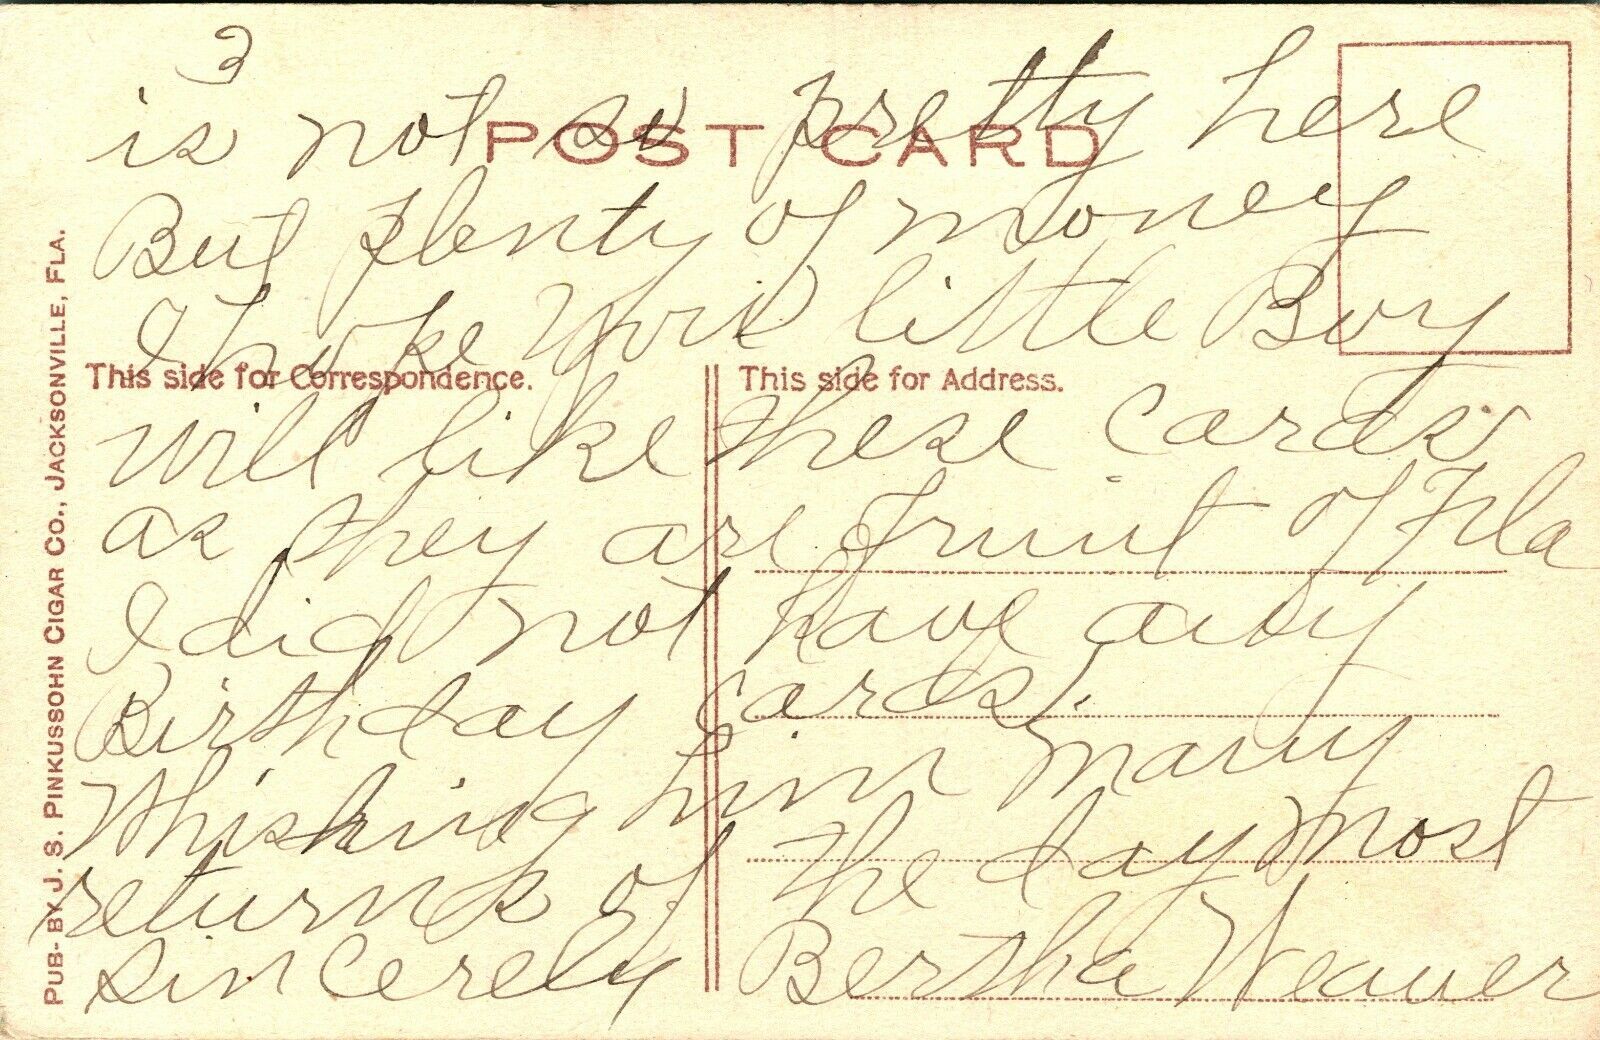 3
is not so pretty here
POST CARD
But plenty of money
I hope your little Boy
This side for Correspondence.
This side for Address.
will like these cards
as they are fruit of Fla
I did not have any
Birthday cards.
Whishing him many
returns of the day most
sincerely Bertha Weaver
PUB- BY J. S. PINKUSSOHN CIGAR CO., JACKSONVILLE, FLA.